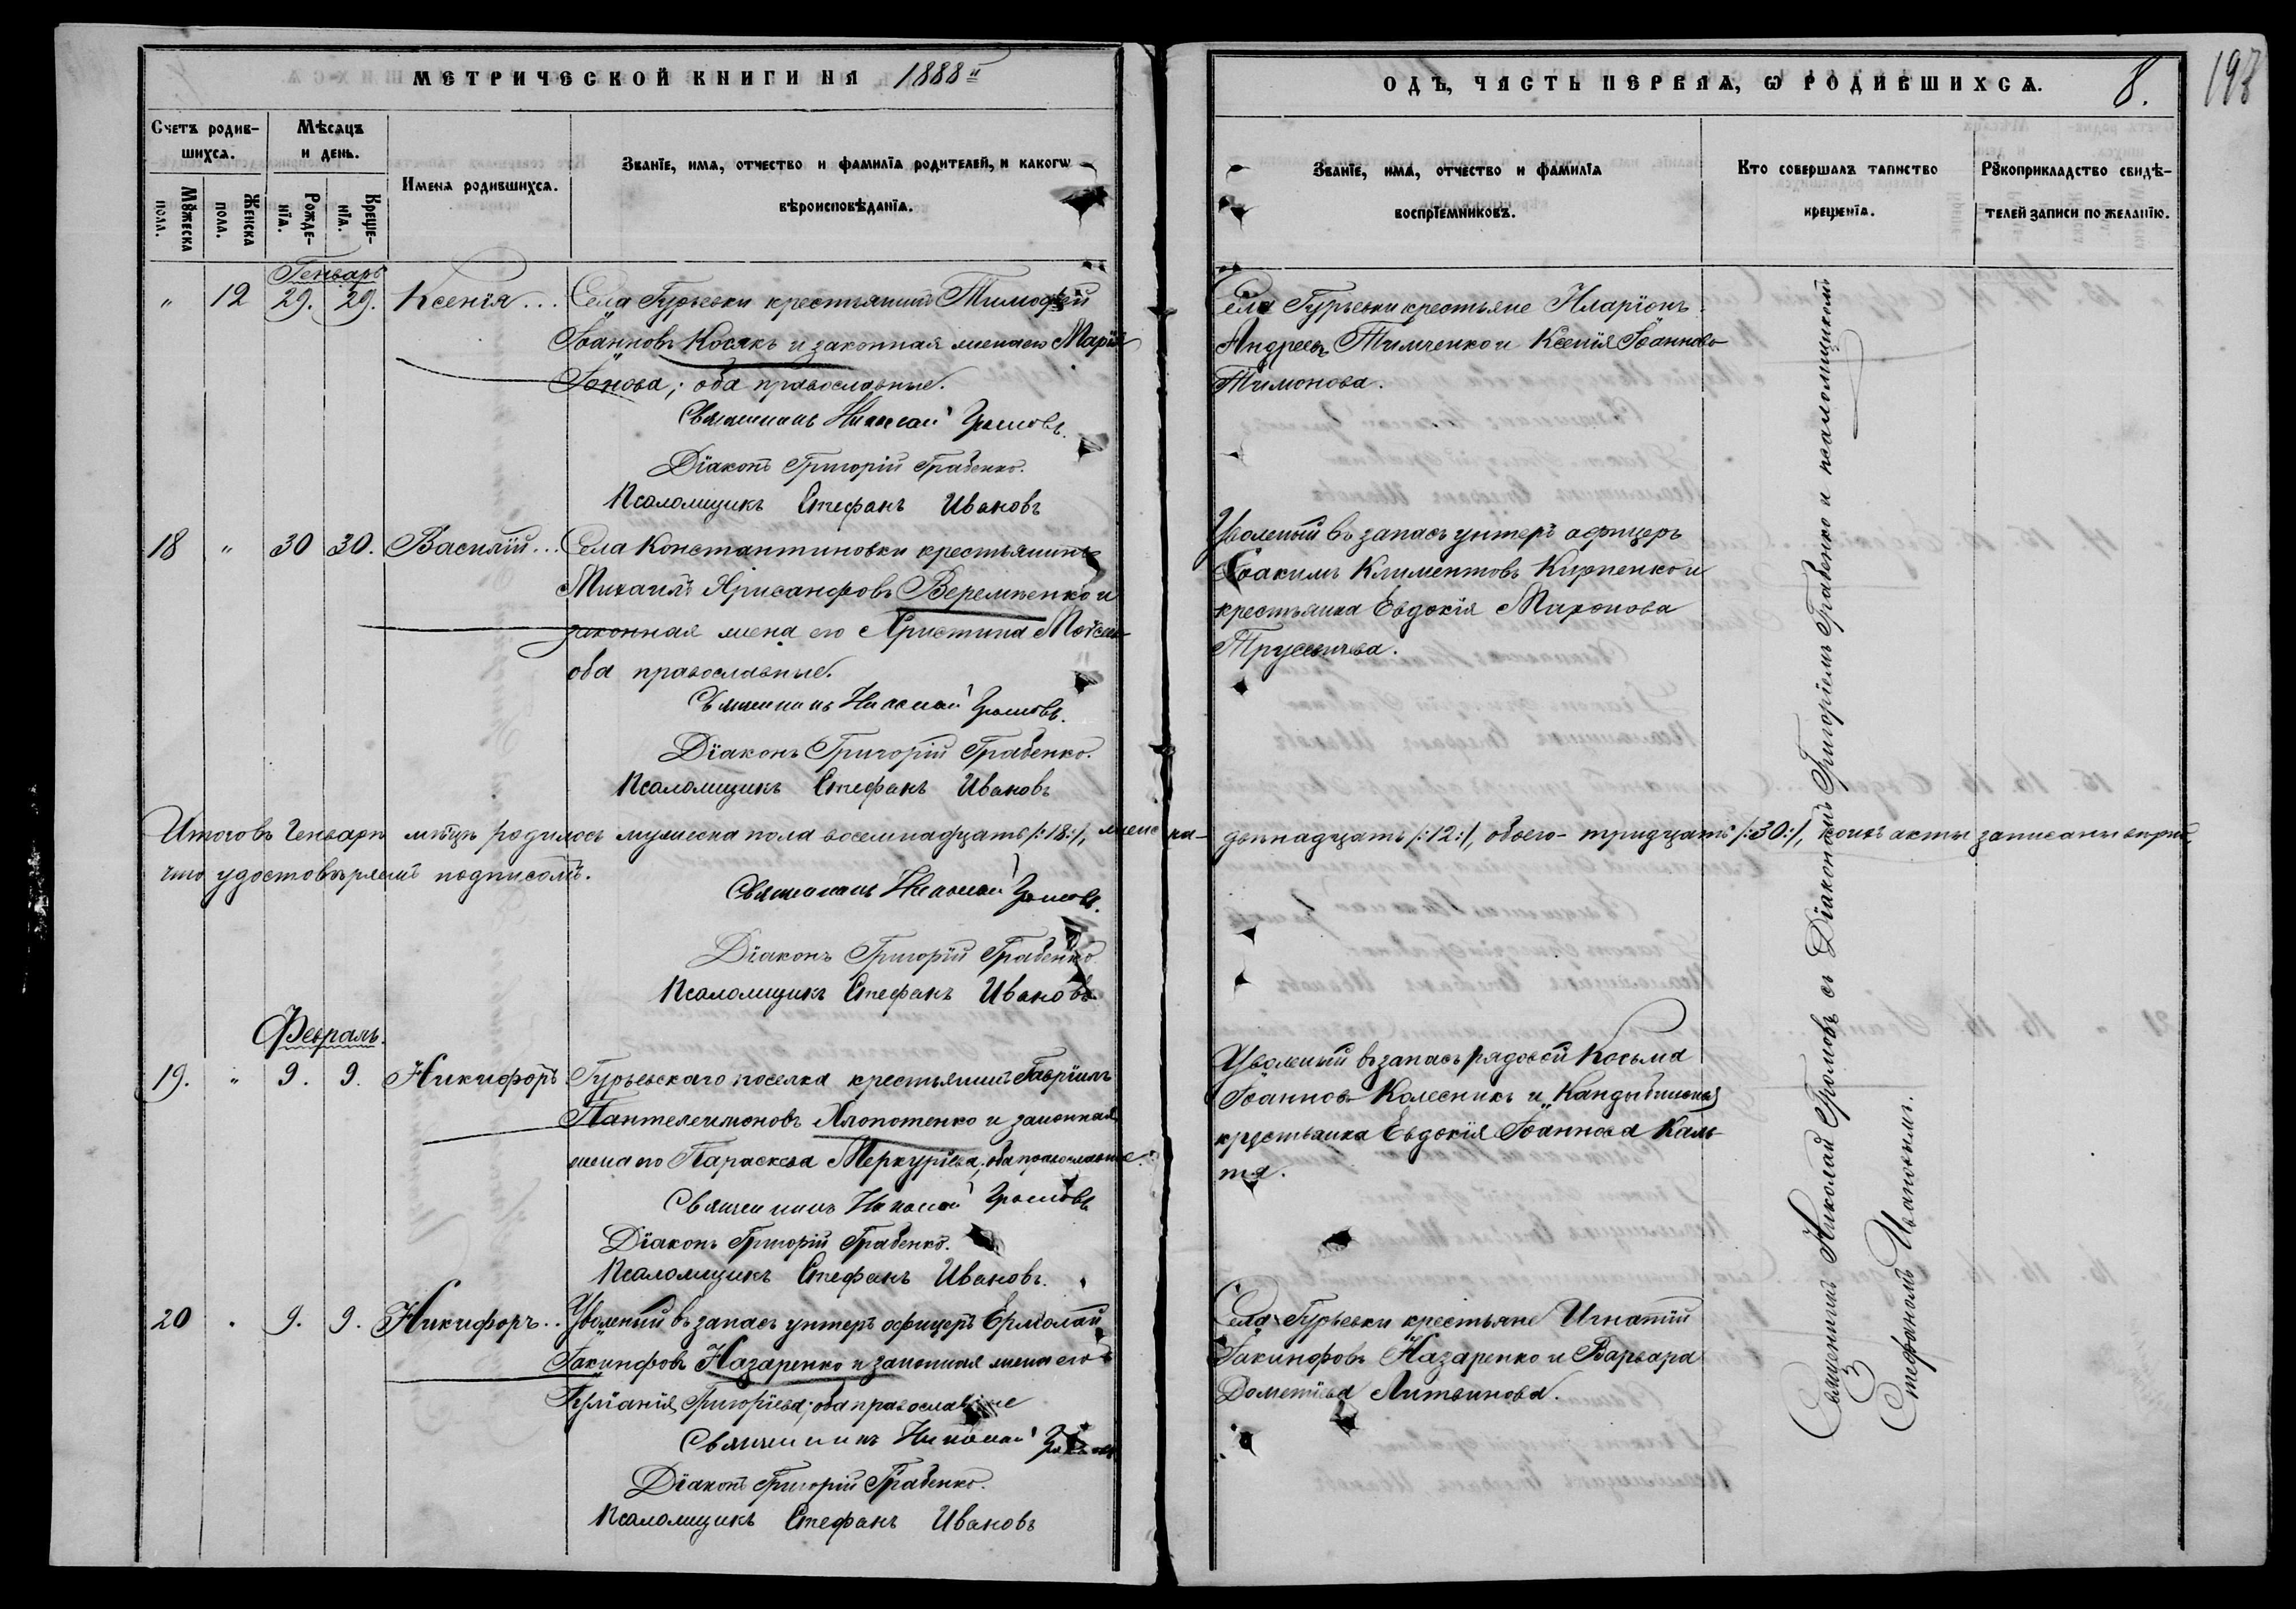 МЕТРИЧЕСКОЙ КНИГИ НА 1888й
Счетъ родив-
шихся.
Мѣсяцъ
и день.
Мꙋжеска
пола.
Женска
пола.
Рожде-
нїя.
Креще-
нїя.
Имена родившихся.
Званїе, имя, отчество и фамилїя родителей, и какогѡ
вѣроисповѣданїя.
Генварь
" 12 29. 29. Ксенія...
Села Гурьевки крестьянинъ Тимофей
Іоанновъ Косякъ и законная жена его Марія
Іонова; оба православные.
Священникъ Николай Громовъ.
Діаконъ Григорій Грабенко.
Псаломщикъ Стефанъ Ивановъ
18 " 30 30. Василій...
Села Константиновки крестьянинъ
Михаилъ Хрисанфовъ Веремѣенко и
законная жена его Христина
оба православные.
Священникъ Николай Громовъ.
Діаконъ Григорій Грабенко.
Псаломщикъ Стефанъ Ивановъ
Итого въ Генварѣ мѣсцѣ родилось мужеска пола восемнадцать /:18:/, женска-
что удостовѣряемъ подписомъ.
Священникъ Николай Громовъ.
Діаконъ Григорій Грабенко
Псаломщикъ Стефанъ Ивановъ
Февраль.
19. " 9. 9. Никифоръ
Гурьевскаго поселка крестьянинъ Гавріилъ
Пантелеимоновъ Хлопотенко и законная
жена его Параскева Меркуріева; оба православные.
Священникъ Николай Громовъ
Діаконъ Григорій Грабенко.
Псаломщикъ Стефанъ Ивановъ.
20 " 9. 9. Никифоръ..
Уволеный въ запасъ унтеръ офицеръ Ермолай
Іакинфовъ Назаренко и законная жена его
Григоріева; оба православные
Священникъ Николай Громовъ
Діаконъ Григорій Грабенко.
Псаломщикъ Стефанъ Ивановъ
ОДЪ, ЧАСТЬ ПЕРВАЯ, Ѡ РОДИВШИХСЯ.
8.
198
Званїе, имя, отчество и фамилїя
воспрїемниковъ.
Кто совершалъ таинство
крещенїя.
Рꙋкоприкладство свидѣ-
телей записи по желанїю.
Села Гурьевки крестьяне Иларіонъ
Андреевъ Тимченко и Ксенія Іоаннова
Тимонова.
Уволеный въ запасъ унтеръ офицеръ
Іоакимъ Климентовъ Кирпенко и
крестьянка Евдокія
двѣнадцать /:12:/, обоего- тридцать /:30:/, коихъ акты записаны вѣрно,
Уволеный въ запасъ рядовой Косьма
Іоанновъ Колесникъ и
крестьянка Евдокія Іоаннова Каль-
та.
Села Гурьевки крестьяне Игнатій
Іакинфовъ Назаренко и Варвара
Дометіева Литвинова.
Священникъ Николай Громовъ съ Діакономъ Григоріемъ Грабенко и псаломщикомъ
Стефаномъ Ивановымъ.